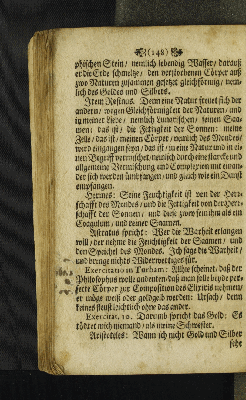 (148)
phischen Stein / nemlich lebendig Wasser / darauß
er die Erde schmeltze / den verstorbenen Cörper auß
zwo Naturen zusammen gesetzt gleichförmig / nem-
lich des Goldes und Silbers.
Item Rosinus. Denn eine Natur freuet sich der
andern / wegen Gleichförmigkeit der Naturen / und
in meiner Liebe / nemlich Lunarischen / seinen Saa-
men: das ist / die Fettigkeit der Sonnen: meine
Zelle / das ist / meinen Cörper / nemlich des Mondes/
wird eingangen seyn / das ist / in eine Natur und in ei-
nen Begriff vermischet / nemlich durch eine starcke und
allgemeine Vermischung und Complexion mit einan-
der sich werden umfangen / und gleich wie ein Dunst
empfangen.
Hermes: Seine Feuchtigkeit ist von der Herr-
schafft des Mondes / und die Fettigkeit von der Herr-
schafft der Sonnen / und diese zwey seyn ihm als ein
Coagulum / und reiner Saamen.
Astratus spricht: Wer die Warheit erlangen
will / der nehme die Feuchtigkeit der Saamen / und
den Speichel des Mondes. Ich sage die Warheit /
und bringe nichts Widerwertiges für.
Exercitatio in Turbam: Allhie scheinet / daß der
Philosophus wolle andeuten / daß man solle beyde per-
fecte Cörper zur Composition des Elixiris nehmen /
er möge weiß oder goldgelb werden: Ursach / denn
keines fleust leichtlich ohne das ander.
Exercitat. 10. Darumb spricht das Gold: Es
tödtet mich niemand / als meine Schwester.
Aristoteles: Wann ich nicht Gold und Silber
sehe